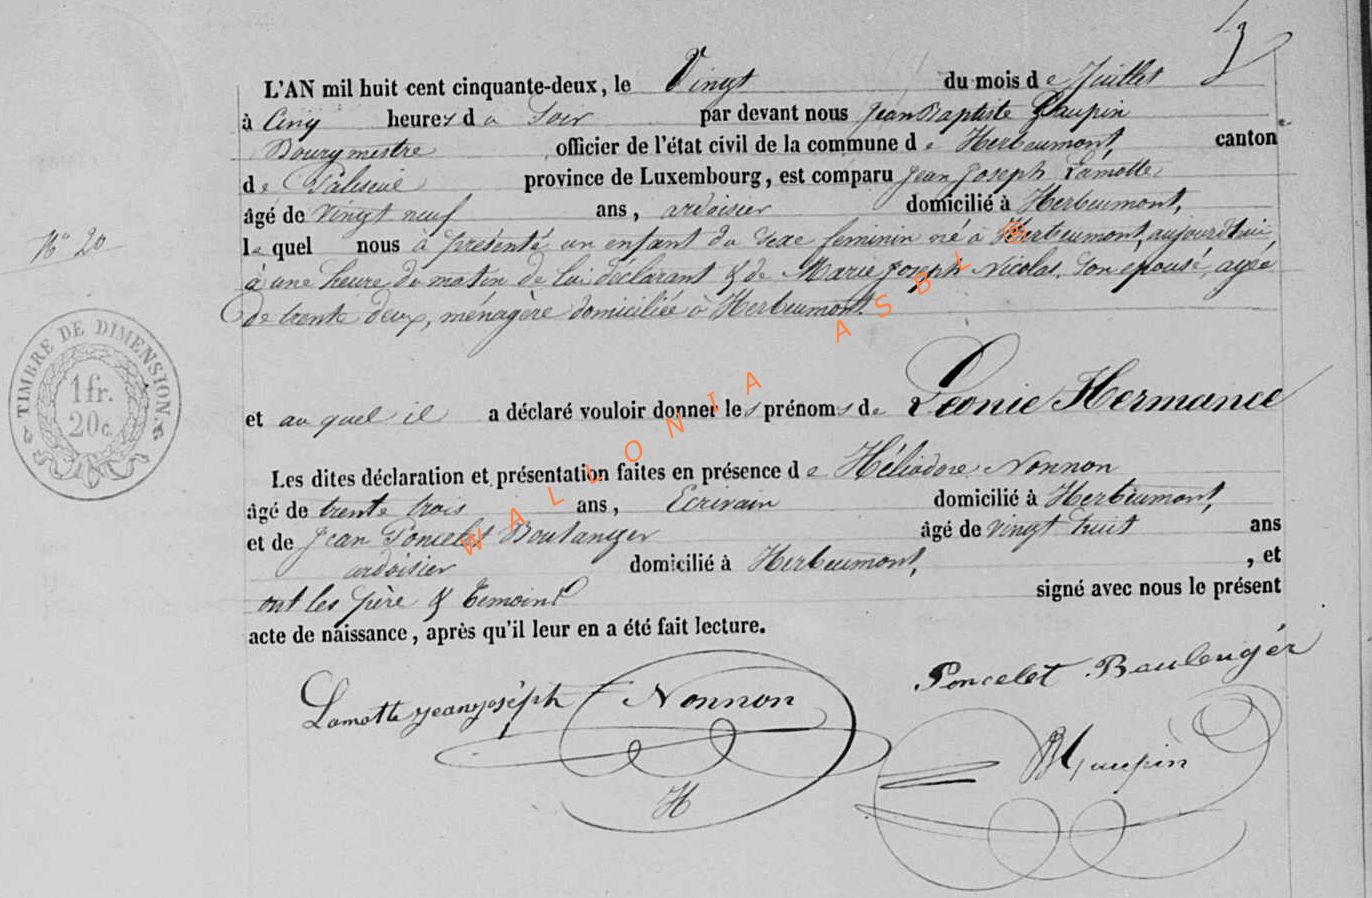 3
L'AN mil huit cent cinquante-deux, le Vingt du mois de Juillet
à Cinq heures du Soir par devant nous Jean Baptiste Maupin
Bourgmestre officier de l'état civil de la commune de Herbeumont, canton
de Paliseul province de Luxembourg, est comparu Jean Joseph Lamotte
âgé de vingt neuf ans, ardoisier domicilié à Herbeumont,
N° 20
lequel nous à présenté un enfant du sexe feminin né à Herbeumont, aujourd'hui,
à une heure du matin de lui déclarant & de Marie Joseph Nicolas, son epousé, agée
de trente deux, ménagère domiciliée à Herbeumont.
TIMBRE DE DIMENSION
1 fr.
20 c.
et au quel il a déclaré vouloir donner les prénoms de Léonie Hermance
Les dites déclaration et présentation faites en présence de Héliodore Nonnon
âgé de trente trois ans, Ecrivain domicilié à Herbeumont,
et de Jean Poncelet Boulanger âgé de vingt huit ans
ardoisier domicilié à Herbeumont, , et
ont les père & temoins signé avec nous le présent
acte de naissance, après qu'il leur en a été fait lecture.
Lamotte jean joséph Nonnon Poncelet Baulengér
H
Maupin
WALLONIA ASBL ®